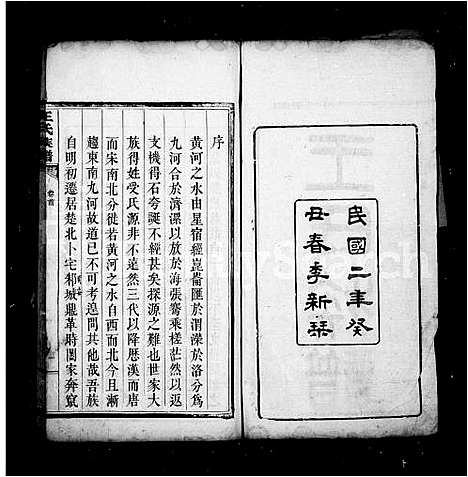 民國二年癸
丑春季新琹
序
黃河之水由星宿經崑崙匯於渭濼於洛分為
九河合於濟漯以放於海張騫乘槎茫然以返
支機得石夸誕不經甚矣探源之難也世家大
族得姓受氏源非不遠然三代以降歷漢而唐
而宋南北分徙若黃河之水自西而北今且漸
趨東南九河故道已不可考遑問其他哉吾族
自明初遷居楚北卜宅邾城鼎革時闔家奔竄
王氏族譜
卷首